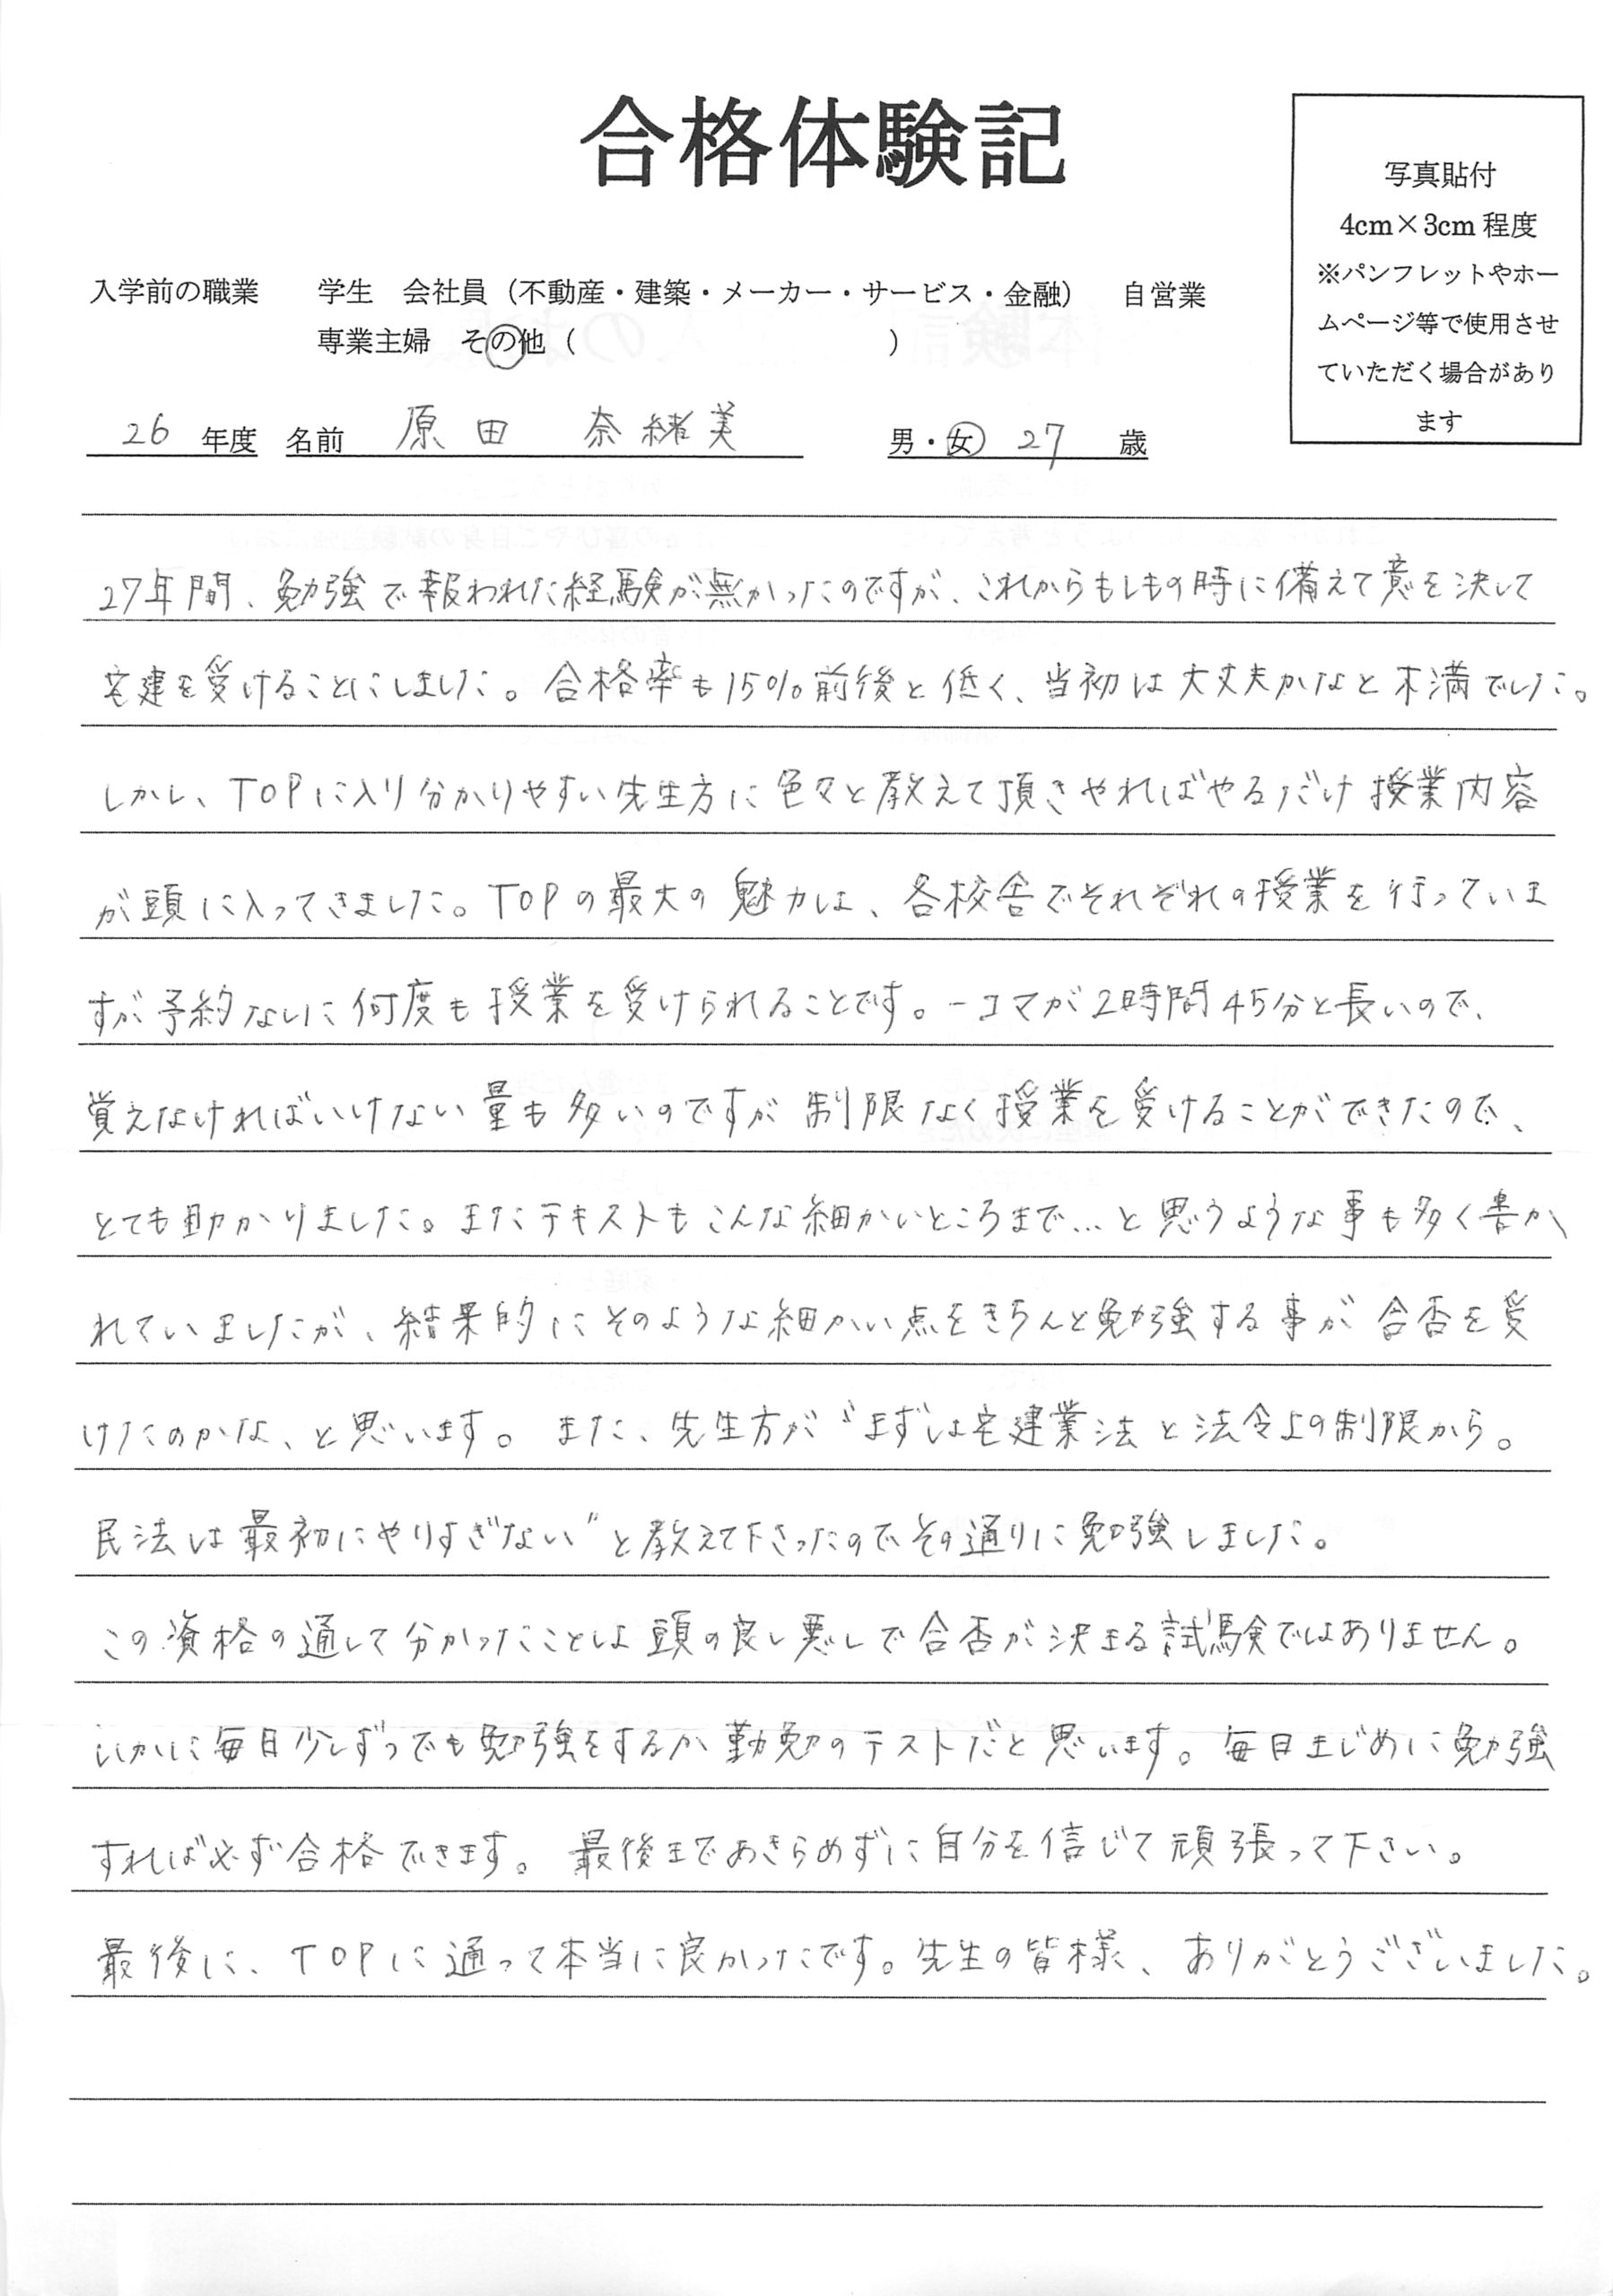 合格体験記
写真貼付
4cm×3cm 程度
※パンフレットやホー
ムページ等で使用させ
ていただく場合があり
ます
入学前の職業　学生　会社員（不動産・建築・メーカー・サービス・金融）　自営業
専業主婦　その他（　　　　）
26 年度　名前　原田　奈緒美　男・女　27　歳
27年間、勉強で報われた経験が無かったのですが、これからもしもの時に備えて意を決して
宅建を受けることにしました。合格率も15%前後と低く、当初は大丈夫かなと不満でした。
しかし、TOPに入り分かりやすい先生方に色々と教えて頂きやればやるだけ授業内容
が頭に入ってきました。TOPの最大の魅力は、各校舎でそれぞれの授業を行っていま
すが予約なしに何度も授業を受けられることです。一コマが2時間45分と長いので、
覚えなければいけない量も多いのですが制限なく授業を受けることができたので、
とても助かりました。またテキストもこんな細かいところまで…と思うような事も多く書か
れていましたが、結果的にそのような細かい点をきちんと勉強する事が合否を受
けたのかな、と思います。また、先生方が〝まずは宅建業法と法令上の制限から。
民法は最初にやりすぎない〟と教えて下さったのでその通りに勉強しました。
この資格の通して分かったことは頭の良し悪しで合否が決まる試験ではありません。
いかに毎日少しずつでも勉強をするか勤勉のテストだと思います。毎日まじめに勉強
すれば必ず合格できます。最後まであきらめずに自分を信じて頑張って下さい。
最後に、TOPに通って本当に良かったです。先生の皆様、ありがとうございました。